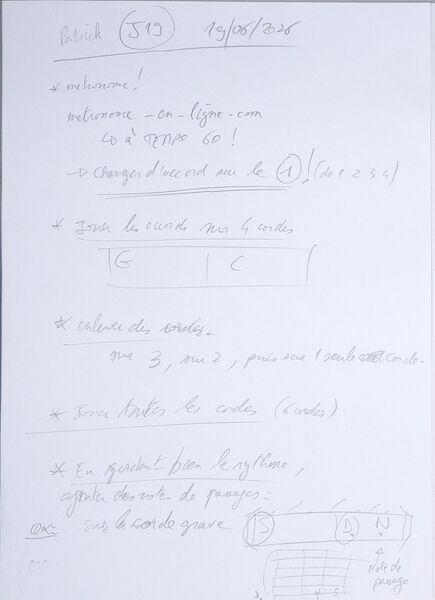 Patrick J19 19/06/2026
* metronome!
metronome-en-ligne-com
↳ à TEMPO 60!
→ Changer d'accord sur le 1! (de 1 2 3 4)
* Jouer les accords sur 4 cordes
G C
* enlever des cordes-
sur 3, sur 2, puis sur 1 seule corde-
* Jouer toutes les cordes (6 cordes)
* En gardant bien le rythme,
ajouter des notes de passages:
ex:- sur la corde grave
Note de
passage